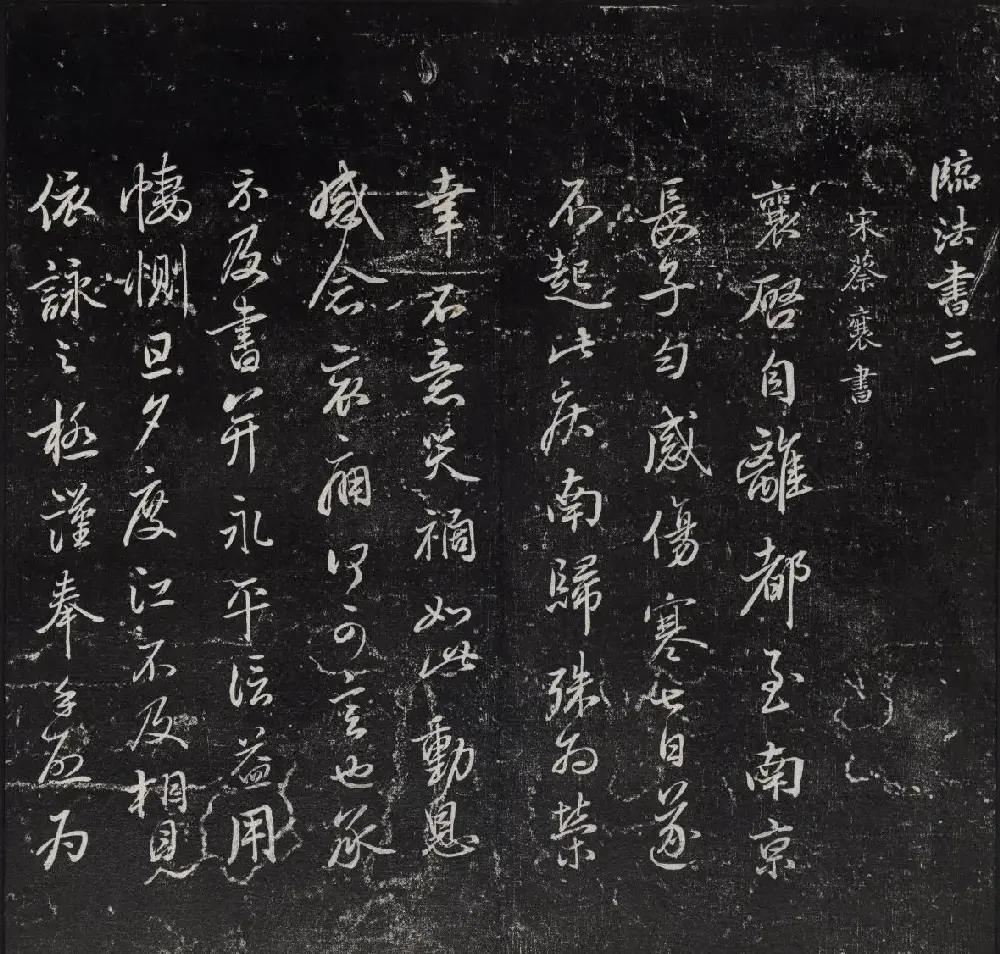 臨法書三
宋蔡襄書
襄啓自離都至南京
長子勻感傷寒七日遂
不起此疾南歸殊為榮
幸不意災禍如此動息
感念哀痛何可言也承
示及書并永平信益用
悽惻旦夕度江不及相見
依詠之極謹奉手啓為